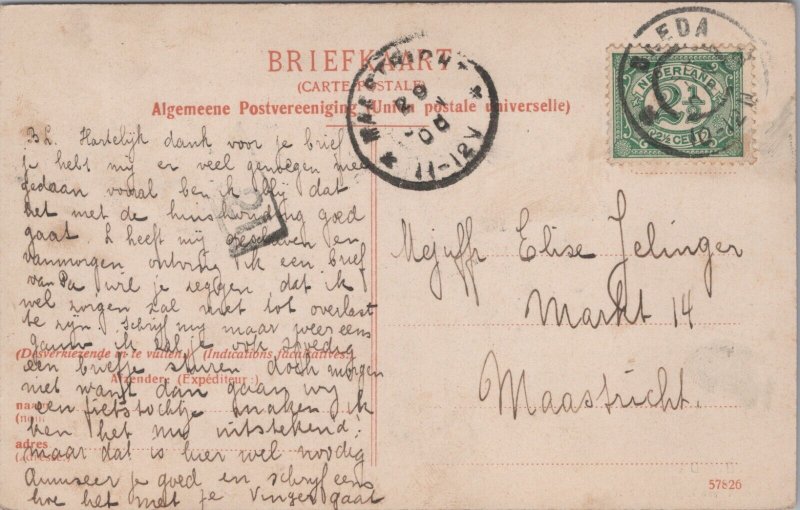 BRIEFKAART
(CARTE POSTALE)
Algemeene Postvereeniging (Union postale universelle)
BREDA
NEDERLAND
2½
2½ CENT
12-12
MAASTRICHT
29
11-12V
BL. Hartelijk dank voor je brief
je hebt mij er veel genoegen mee
gedaan vooral ben ik blij dat
het met de huishouding goed
gaat. L heeft mij geschreven en
vanmorgen ontving ik een brief
van Pa wil je zeggen dat ik
wel zorgen zal niet tot overlast
te zijn. Schrijf mij maar weer eens
gauw ik zal je ook spoedig
een briefje sturen doch morgen
niet want dan gaan wij
een fietstochtje maken ik
ken het nu uitstekend;
maar dat is hier wel noodig
Amuseer je goed en schrijf eens
hoe het met je vinger gaat
(Desverkiezende in te vullen.) (Indications facultatives:)
Afzender: (Expéditeur:)
naam
adres
Mejuffr Elise Jelinger
Markt 14
Maastricht.
57826